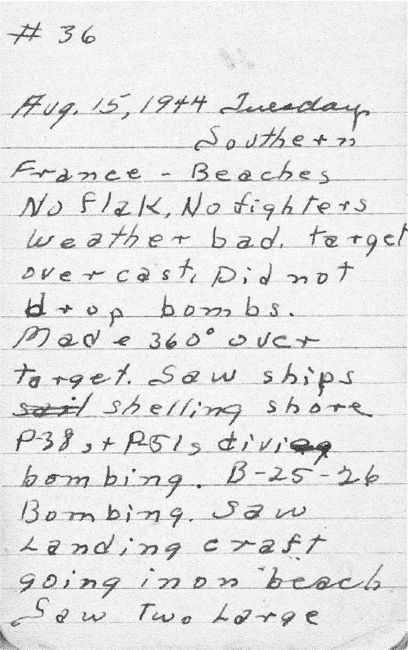 # 36
Aug. 15, 1944 Tuesday
Southern
France - Beaches
No flak, No fighters
Weather bad. target
overcast, Did not
drop bombs.
Made 360° over
target. Saw ships
sail shelling shore
P-38s + P-51s diving
bombing. B-25-26
Bombing. Saw
Landing craft
going in on beach
Saw Two Large